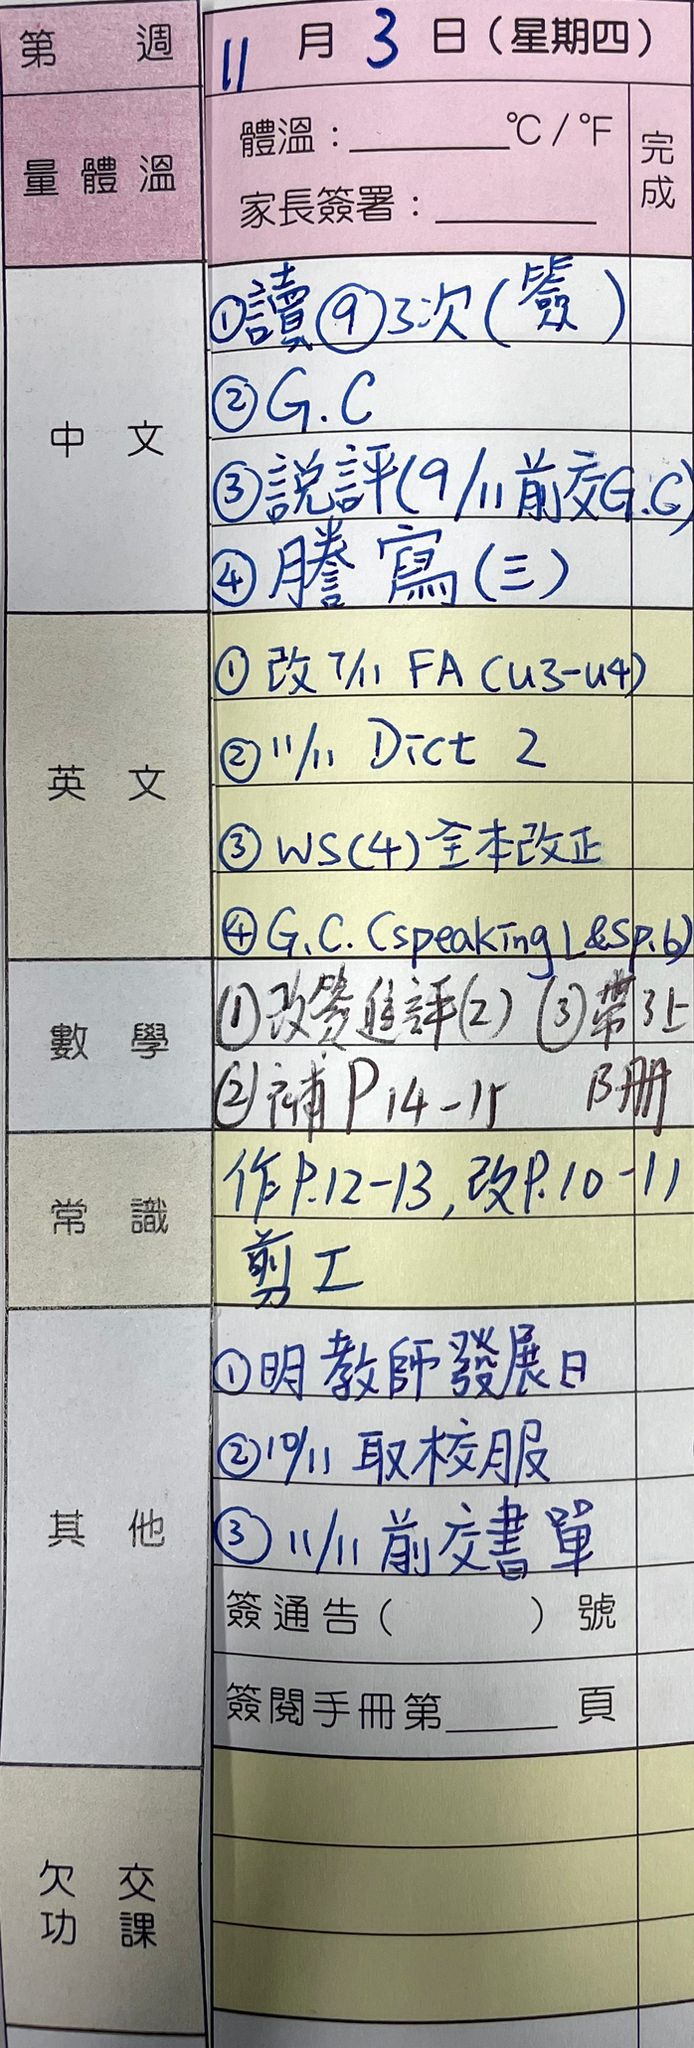 第 週 11 月 3 日 (星期四)
量體溫
體溫：______°C / °F
家長簽署：______
完成
中文
①讀⑨3次(簽)
②G.C
③説評(9/11前交G.C)
④謄寫(三)
英文
①改7/11 FA (U3-U4)
②11/11 Dict 2
③WS(4)全本改正
④G.C. (speaking L&Sp.6)
數學
①改簽進評(2) ③帶3上
②補P14-15 B冊
常識
作P.12-13,改P.10-11
剪工
其他
①明教師發展日
②10/11 取校服
③11/11前交書單
簽通告( )號
簽閱手冊第____頁
欠交
功課